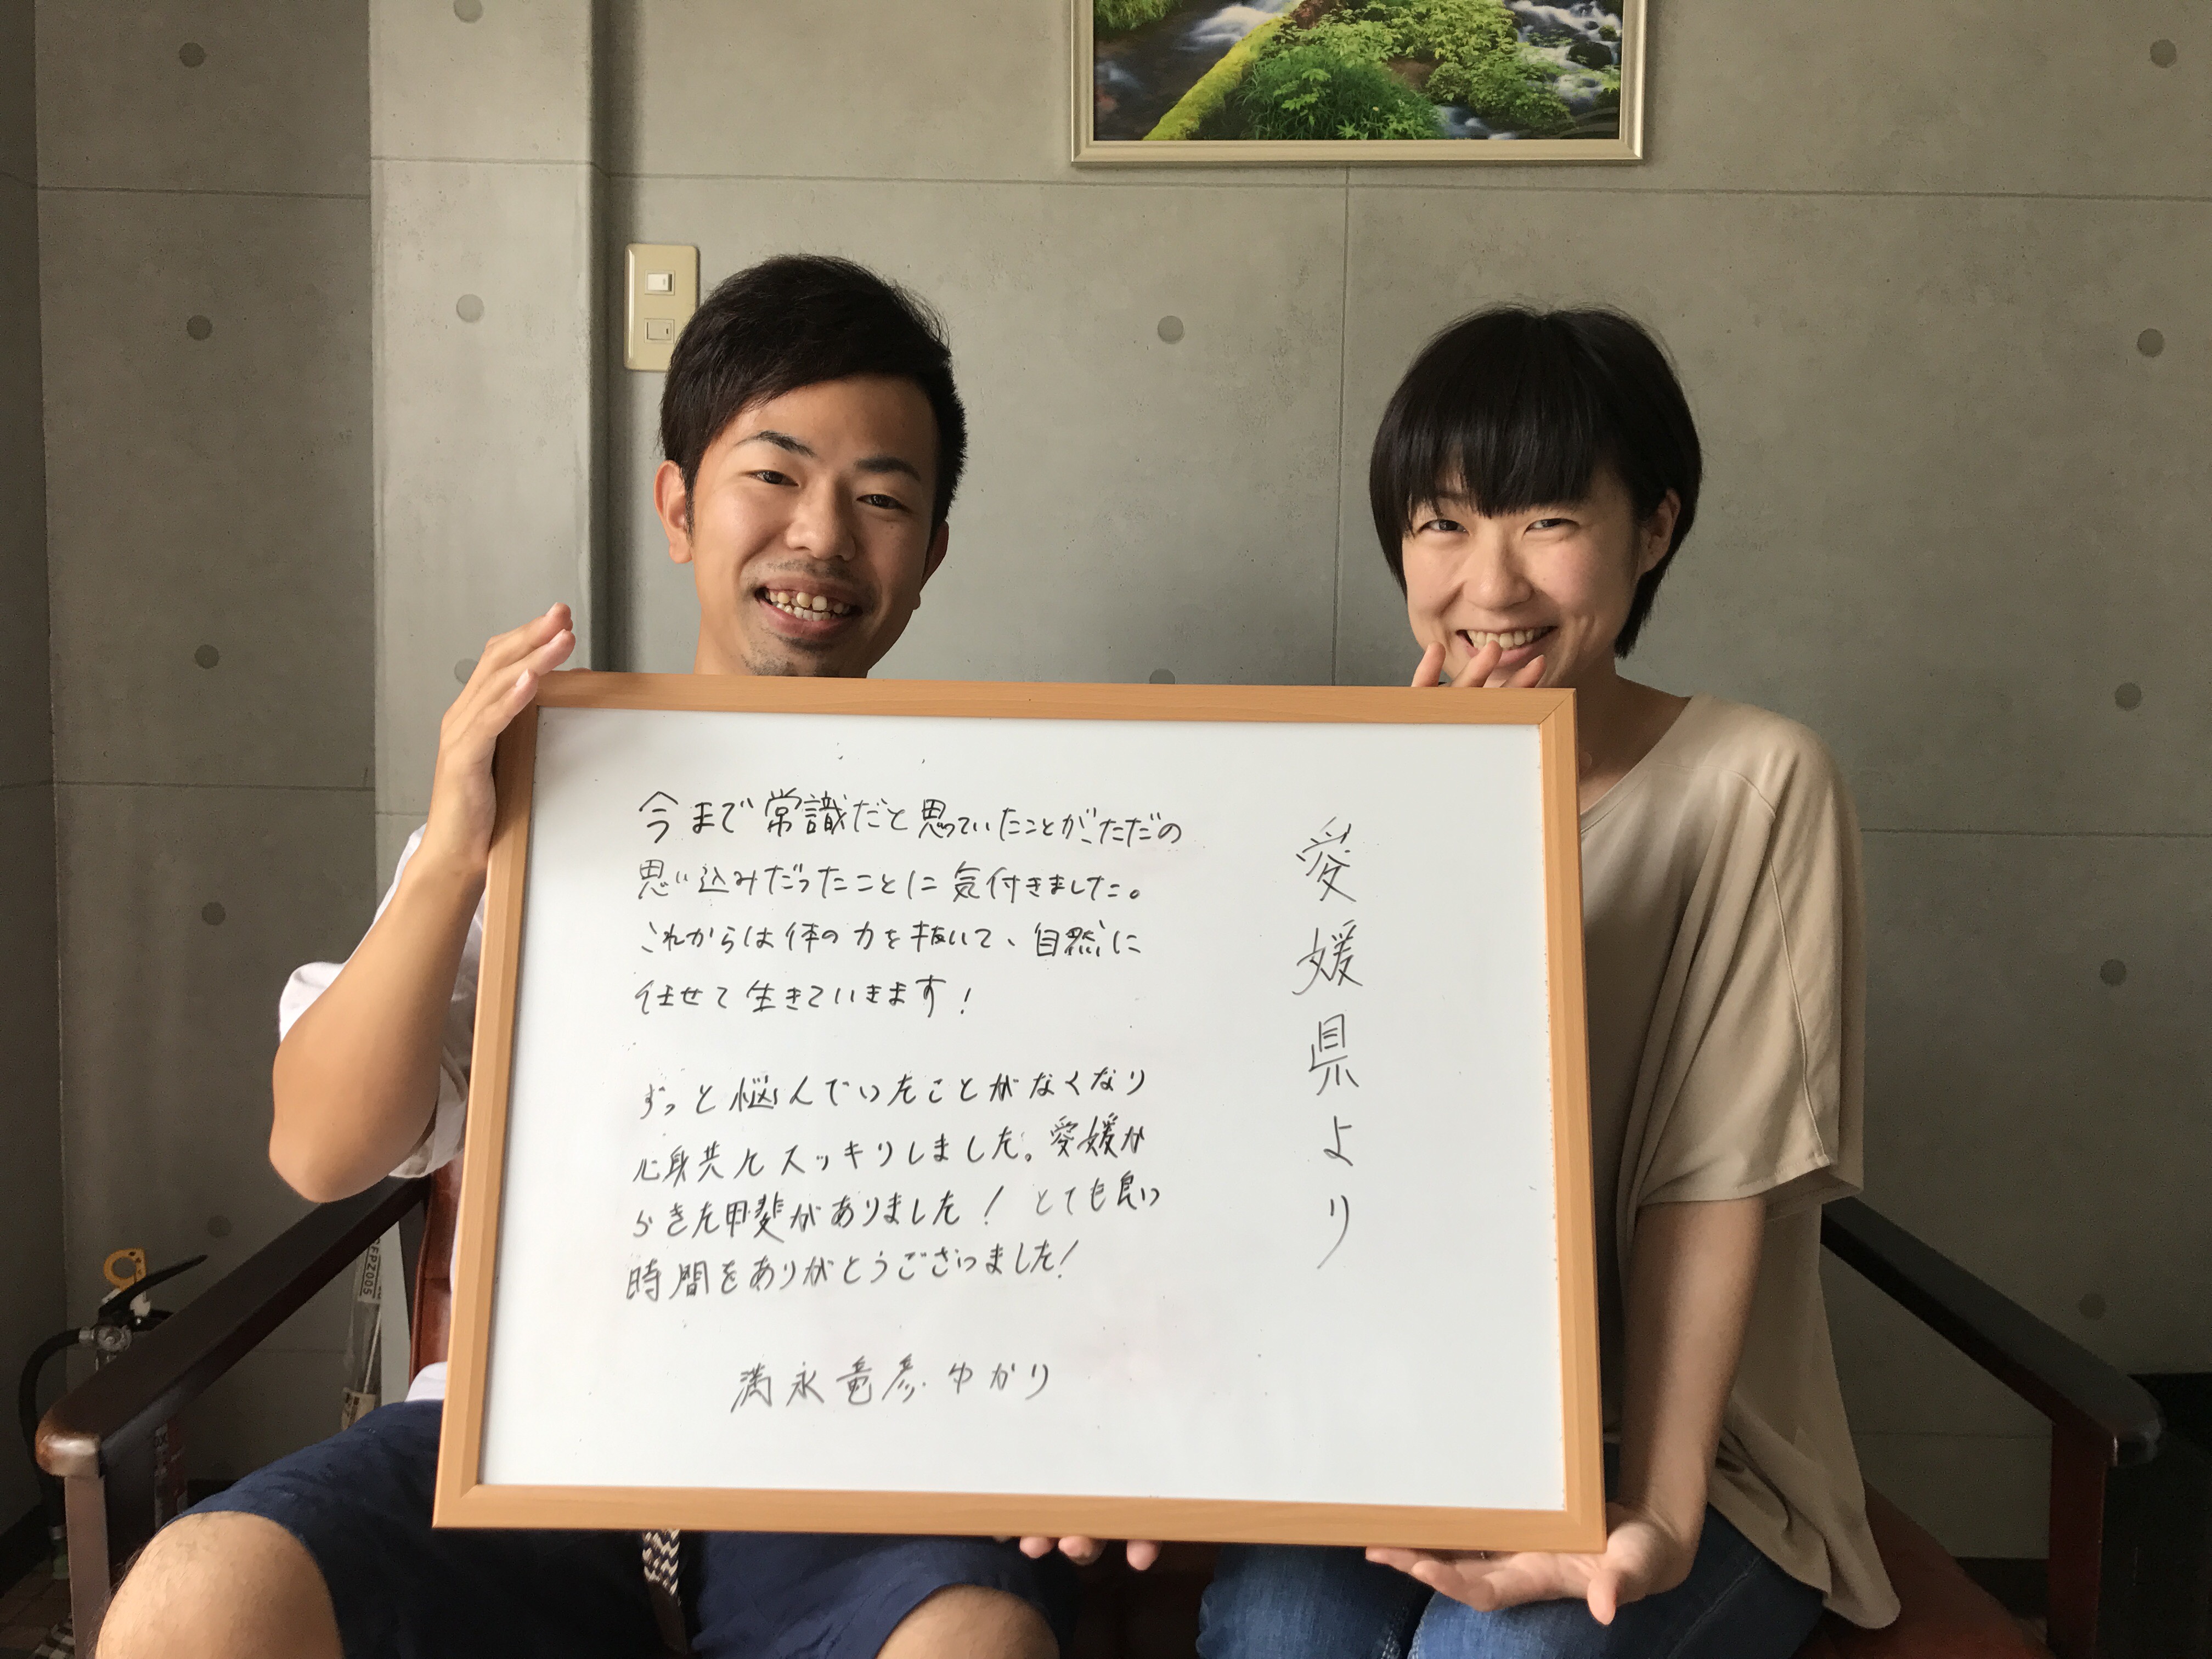 愛媛県より
今まで常識だと思っていたことが、ただの
思い込みだったことに気付きました。
これからは体の力を抜いて、自然に
任せて生きていきます!
ずっと悩んでいたことがなくなり
心身共にスッキリしました。愛媛か
らきた甲斐がありました! とても良い
時間をありがとうございました!
満永竜彦・ゆかり
FPZ005